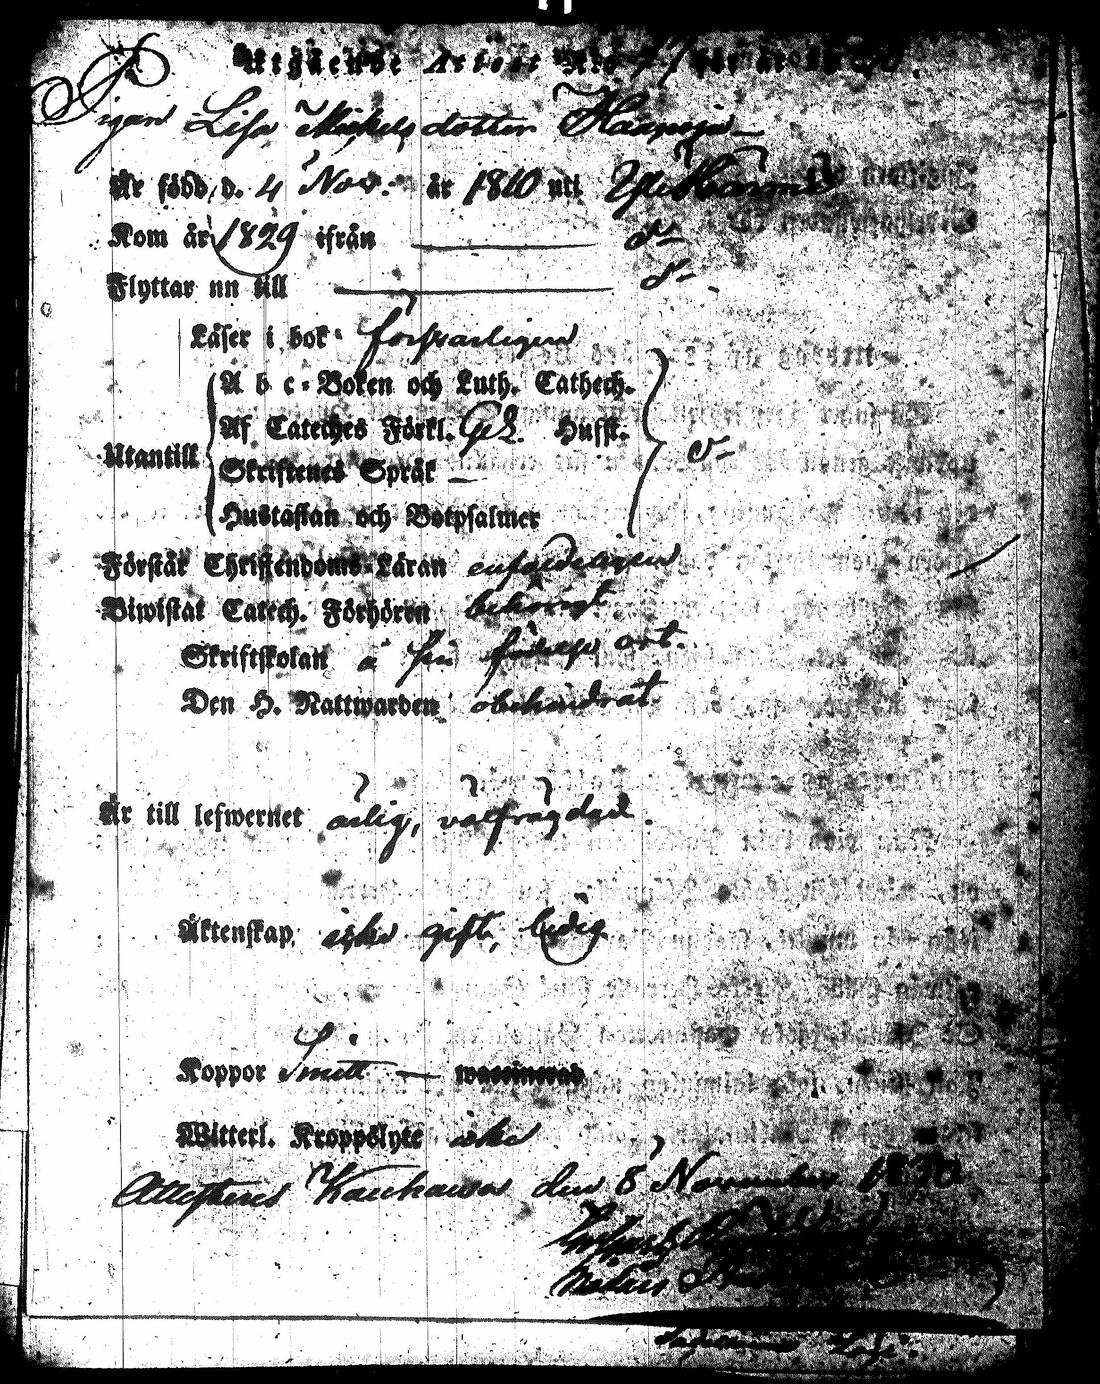 Utgående Attest N:o 71 för år 1830.
Pigan Lisa Mickelsdotter Haapoja
Är född d. 4 Nov. år 1810 uti Ylihärmä
Kom år 1829 ifrån — d:o
Flyttar nu till — d:o
Läser i bok försvarligen
A b c-Boken och Luth. Cathech.
Af Cateches Förkl. Hufst.
Utantill
Skriftenes Språk —
Hustaflan och Botpsalmer
Förstår Christendoms-Läran enfaldeligen
Biwistat Catech. Förhören behörigt
Skriftskolan å sin födelse ort.
Den H. Nattwarden obehindrat
Är till lefwernet ärlig, välfrägdad.
Äktenskap icke gift, ledig
Koppor Smitt — waccinerad
Witterl. Kroppslyte icke
Attesteras Kauhava den 8 November 1830